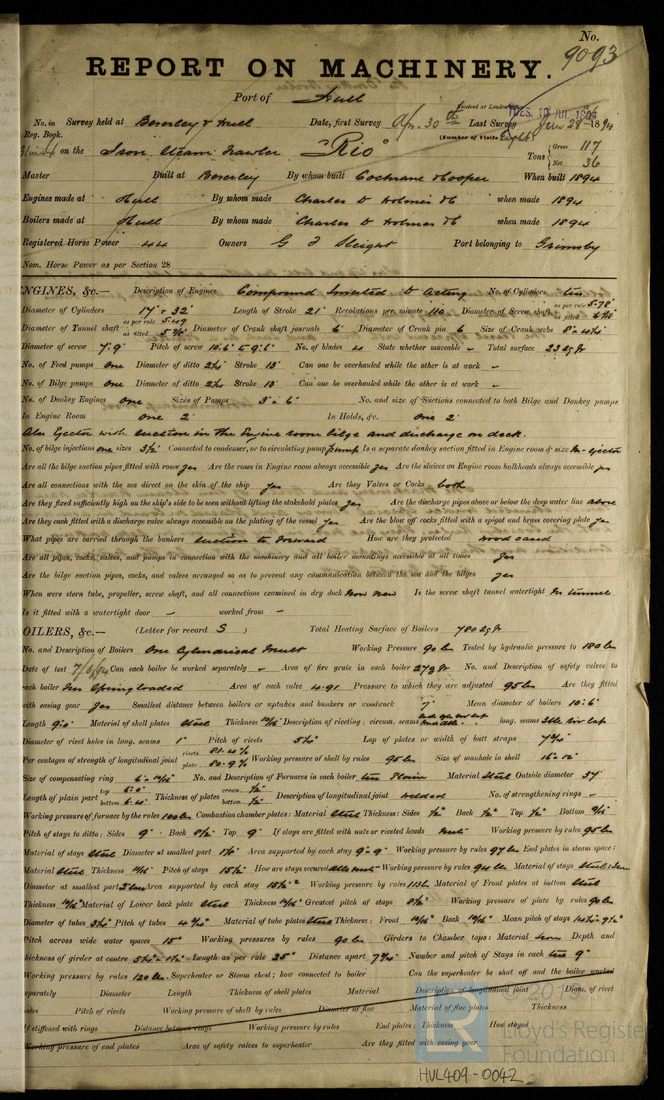 No.
9093
REPORT ON MACHINERY.
Port of Hull
Received at London TUES. 10 JUL 1894
No. in Survey held at Beverley & Hull Date, first Survey Apr. 30th Last Survey June 28 1894
Reg. Book. (Number of Visits Eight)
on the Iron Steam Trawler "Rio" Tons Gross 117 Net 36
Master Built at Beverley By whom built Cochrane & Cooper When built 1894
Engines made at Hull By whom made Charles D Holmes & Co when made 1894
Boilers made at Hull By whom made Charles D Holmes & Co when made 1894
Registered Horse Power 44 Owners G F Sleight Port belonging to Grimsby
Nom. Horse Power as per Section 28
ENGINES, &c.— Description of Engines Compound Inverted D Acting No. of Cylinders two
Diameter of Cylinders 17" & 32" Length of Stroke 21" Revolutions per minute 110 Diameter of Screw shaft as per rule 5.78 as fitted
Diameter of Tunnel shaft as per rule 5.49 as fitted Diameter of Crank shaft journals 6" Diameter of Crank pin 6" Size of Crank webs
Diameter of screw 7'.9" Pitch of screw No. of blades 4 State whether moveable – Total surface 23 sq ft
No. of Feed pumps One Diameter of ditto 2¼" Stroke 13" Can one be overhauled while the other is at work –
No. of Bilge pumps One Diameter of ditto 2¼" Stroke 13" Can one be overhauled while the other is at work –
No. of Donkey Engines One Sizes of Pumps 3" & 6" No. and size of Suctions connected to both Bilge and Donkey pumps
In Engine Room One 2" In Holds, &c. One 2"
Also Ejector with suction in the Engine room bilge and discharge on deck.
No. of bilge injections one sizes 3½" Connected to condenser, or to circulating pump pump Is a separate donkey suction fitted in Engine room & size Yes ejector
Are all the bilge suction pipes fitted with roses yes Are the roses in Engine room always accessible yes Are the sluices on Engine room bulkheads always accessible yes
Are all connections with the sea direct on the skin of the ship Yes Are they Valves or Cocks both
Are they fixed sufficiently high on the ship's side to be seen without lifting the stokehold plates Yes Are the discharge pipes above or below the deep water line above
Are they each fitted with a discharge valve always accessible on the plating of the vessel Yes Are the blow off cocks fitted with a spigot and brass covering plate Yes
What pipes are carried through the bunkers suction to forward How are they protected wood cased
Are all pipes, cocks, valves, and pumps in connection with the machinery and all boiler mountings accessible at all times Yes
Are the bilge suction pipes, cocks, and valves arranged so as to prevent any communication between the sea and the bilges Yes
When were stern tube, propeller, screw shaft, and all connections examined in dry dock Now new Is the screw shaft tunnel watertight No tunnel
Is it fitted with a watertight door – worked from –
OILERS, &c.— (Letter for record S) Total Heating Surface of Boilers 780 sq ft
No. and Description of Boilers One Cylindrical Mult Working Pressure 90 lbs Tested by hydraulic pressure to 180 lbs
Date of test 7/6/94 Can each boiler be worked separately – Area of fire grate in each boiler 27 sq ft No. and Description of safety valves to
each boiler Two Spring loaded Area of each valve 4.91 Pressure to which they are adjusted 95 lbs Are they fitted
with easing gear yes Smallest distance between boilers or uptakes and bunkers or woodwork 7" Mean diameter of boilers 10'.6"
Length 9'.0" Material of shell plates Steel Thickness Description of riveting: circum. seams long. seams
Diameter of rivet holes in long. seams 1" Pitch of rivets Lap of plates or width of butt straps
Per centages of strength of longitudinal joint rivets plate 80.9% Working pressure of shell by rules 95 lbs Size of manhole in shell 16" x 12"
Size of compensating ring No. and Description of Furnaces in each boiler two Plain Material Steel Outside diameter 37"
Length of plain part top bottom Thickness of plates crown ½" bottom ½" Description of longitudinal joint welded No. of strengthening rings –
Working pressure of furnace by the rules 100 lbs Combustion chamber plates: Material Steel Thickness: Sides ½" Back ½" Top ½" Bottom
Pitch of stays to ditto: Sides 9" Back Top 9" If stays are fitted with nuts or riveted heads nuts Working pressure by rules 95 lbs
Material of stays Steel Diameter at smallest part Area supported by each stay 9" x 9" Working pressure by rules 97 lbs End plates in steam space:
Material Steel Thickness Pitch of stays How are stays secured Working pressure by rules 94 lbs Material of stays Steel
Diameter at smallest part Area supported by each stay Working pressure by rules 113 lbs Material of Front plates at bottom Steel
Thickness Material of Lower back plate Steel Thickness Greatest pitch of stays Working pressure of plate by rules 90 lbs
Diameter of tubes 3¼" Pitch of tubes Material of tube plates Steel Thickness: Front Back Mean pitch of stays
Pitch across wide water spaces 15" Working pressures by rules 90 lbs Girders to Chamber tops: Material Iron Depth and
thickness of girder at centre Length as per rule 25" Distance apart Number and pitch of Stays in each two 9"
Working pressure by rules 120 lbs Superheater or Steam chest; how connected to boiler Can the superheater be shut off and the boiler worked
separately Diameter Length Thickness of shell plates Material Description of longitudinal joint Diam. of rivet
holes Pitch of rivets Working pressure of shell by rules Diameter of flue Material of flue plates Thickness
If stiffened with rings Distance between rings Working pressure by rules End plates: Thickness How stayed
Working pressure of end plates Area of safety valves to superheater Are they fitted with easing gear
LR
© 2019
Lloyd's Register
Foundation
HUL409-0042